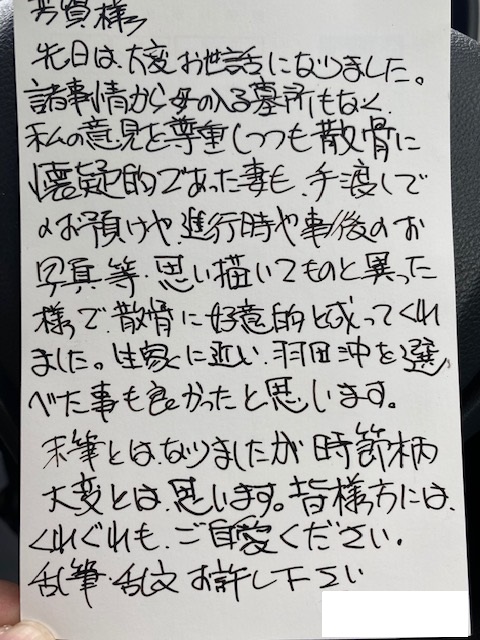 芳賀様
先日は、大変お世話になりました。
諸事情から母の入る墓所もなく、
私の意見を尊重しつつも散骨に
懐疑的であった妻も、手渡しで
のお預けや、進行時や事後のお
写真等、思い描いてものと異った
様で、散骨に好意的と成ってくれ
ました。生家に近い、羽田沖を選
べた事も良かったと思います。
末筆とは、なりましたが時節柄
大変とは、思います。皆様方には、
くれぐれも、ご自愛ください。
乱筆・乱文お許し下さい